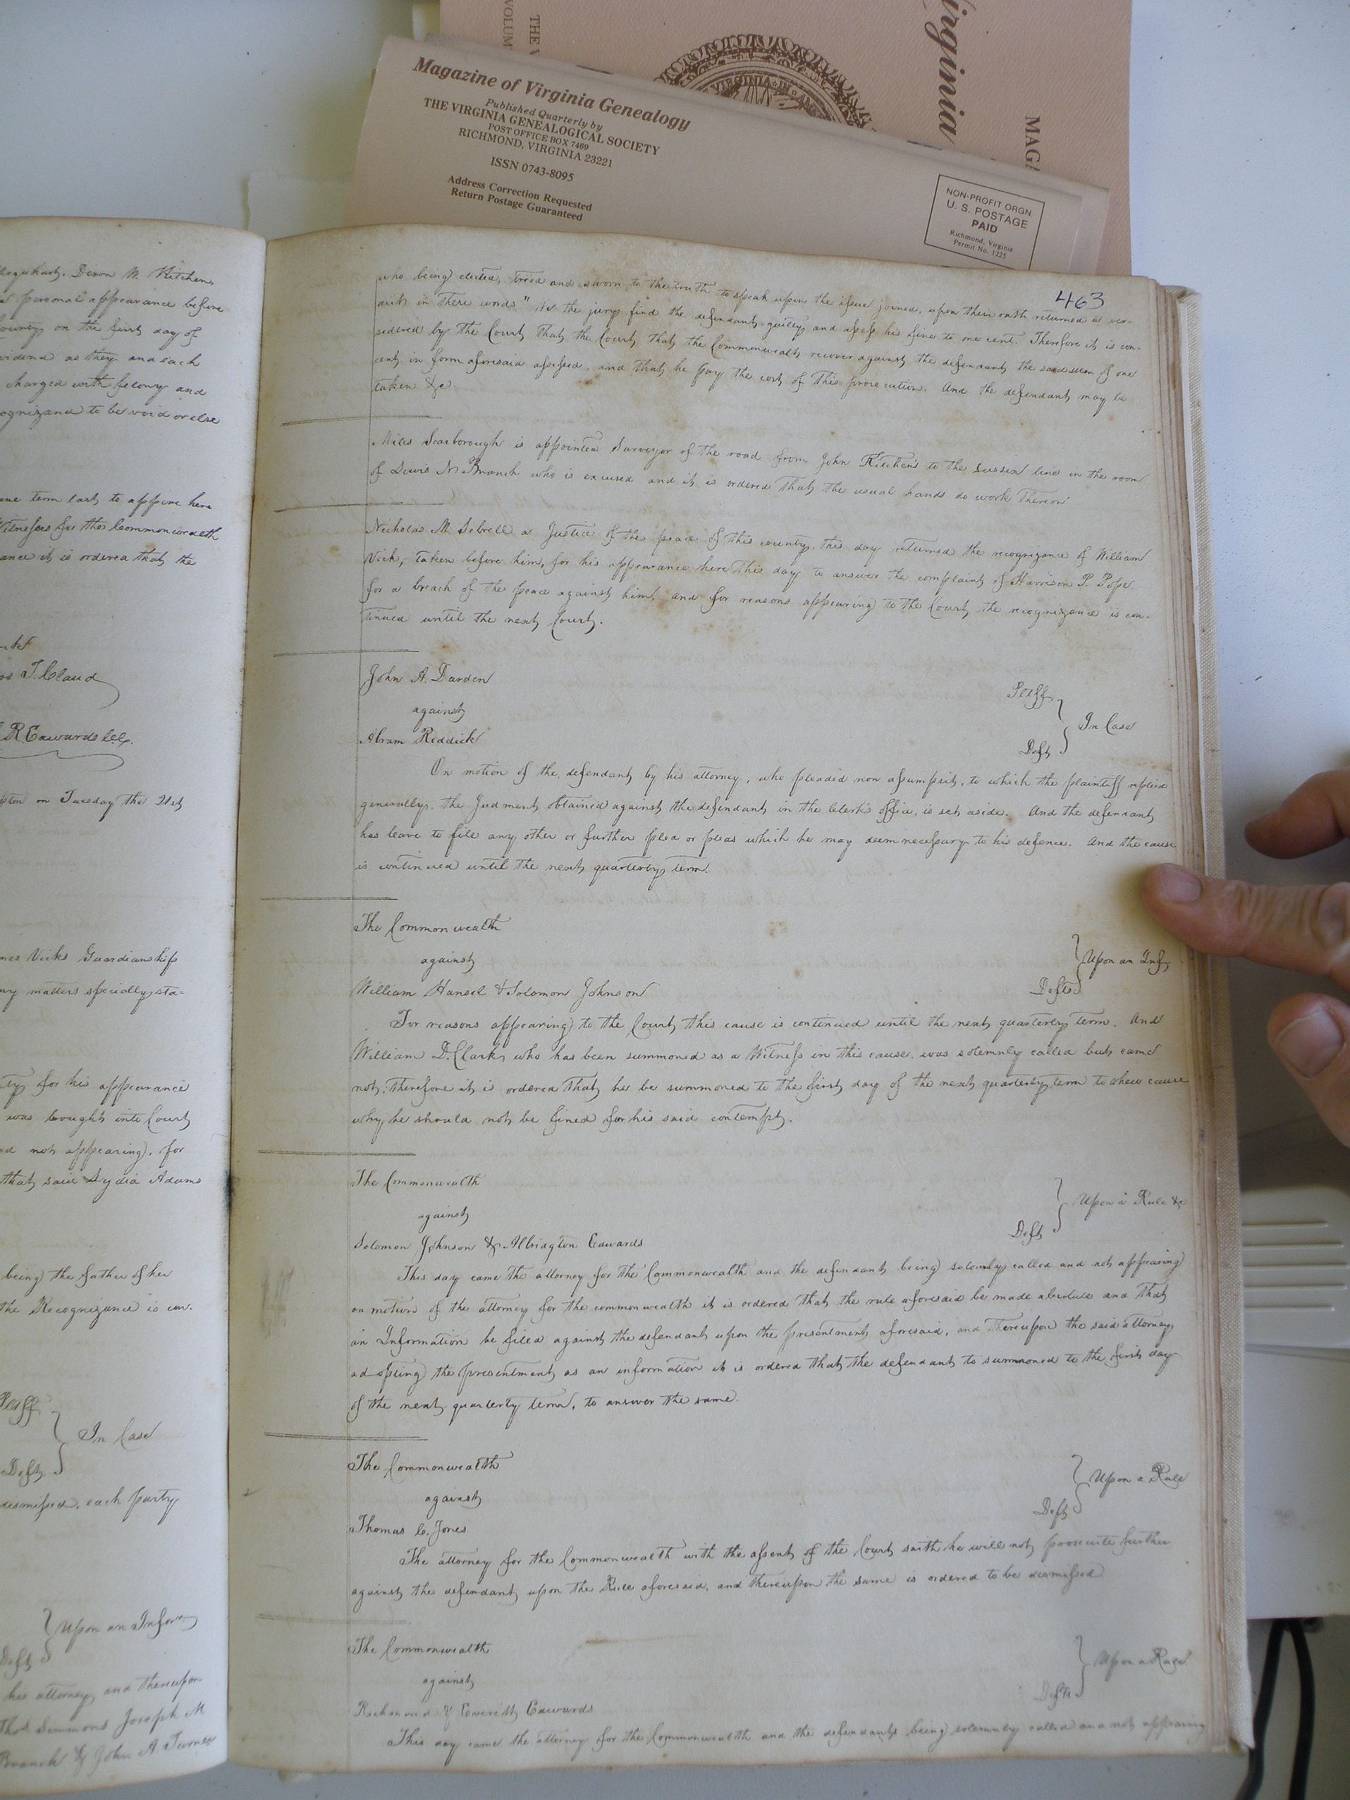 Virginia
MAG
THE V
VOLUM
VIRGINIA
Magazine of Virginia Genealogy
Published Quarterly by
THE VIRGINIA GENEALOGICAL SOCIETY
POST OFFICE BOX 7469
RICHMOND, VIRGINIA 23221
ISSN 0743-8095
Address Correction Requested
Return Postage Guaranteed
NON-PROFIT ORGN
U. S. POSTAGE
PAID
Richmond, Virginia
Permit No. 1225
personal appearance before
County on the first day of
as they and each
charged with felony and
to be void or else
term last, to appear here
Witnesses for the Commonwealth
it is ordered that the
T. Claud
R Edwards
on Tuesday the 21st
Vicks Guardianship
matters specially sta-
for his appearance
was brought into Court
not appearing, for
that said Lydia Adams
being the father of her
the Recognizance is con-
Plff
In Case
Deft
dismissed, each party
Upon an Infor
Deft
his attorney and thereupon
Simmons Joseph M
Branch & John A. Turner
463
who being elected, tried and sworn, to the truth to speak upon the issue joined, upon their oath returned a ver-
dict in these words "We the jury find the defendant guilty and assess his fine to one cent. Therefore it is con-
sidered by the Court that the Court, that the Commonwealth recover against the defendant the said sum of one
cent, in form aforesaid assessed, and that he pay the cost of this prosecution. And the defendant may be
taken &c
Miles Scarborough is appointed Surveyor of the road from John Kitchens to the Sussex line in the room
of Lewis N. Branch who is excused and it is ordered that the usual hands do work thereon
Nicholas M. Sebrell a Justice of the peace of this county, this day returned the recognizance of William
Vick, taken before him, for his appearance here this day to answer the complaint of Harrison P. Pope
for a breach of the peace against him, and for reasons appearing to the Court, the recognizance is con-
tinued until the next Court.
John A. Darden
Plff
against
In Case
Abram Reddick
Deft
On motion of the defendant by his attorney, who pleaded non assumpsit, to which the plaintiff replied
generally, the Judment obtained against the defendant in the Clerk's office, is set aside. And the defendant
has leave to file any other or further plea or pleas which he may deem necessary to his defence. And the cause
is continued until the next quarterly term
The Commonwealth
against
Upon an Inf
William Hansel & Solomon Johnson
Defts
For reasons appearing to the Court this cause is continued until the next quarterly term. And
William D. Clark, who has been summoned as a Witness in this cause, was solemnly called but came
not, therefore it is ordered that he be summoned to the first day of the next quarterly term to shew cause
why he should not be fined for his said contempt.
The Commonwealth
against
Upon a Rule &c
Deft
Solomon Johnson & Albridgton Edwards
This day came the attorney for the Commonwealth and the defendant being solemnly called and not appearing
on motion of the attorney for the commonwealth it is ordered that the rule aforesaid be made absolute and that
an Information be filed against the defendant upon the presentment aforesaid, and thereupon the said attorney
adopting the presentment as an information it is ordered that the defendant to summoned to the first day
of the next quarterly term, to answer the same
The Commonwealth
Upon a Rule
against
Deft
Thomas C. Jones
The attorney for the Commonwealth with the assent of the Court saith he will not prosecute further
against the defendant upon the Rule aforesaid, and thereupon the same is ordered to be dismissed
The Commonwealth
Upon a Rule
against
Defts
Richmond & Everett Edwards
This day came the attorney for the Commonwealth and the defendants being solemnly called and not appearing